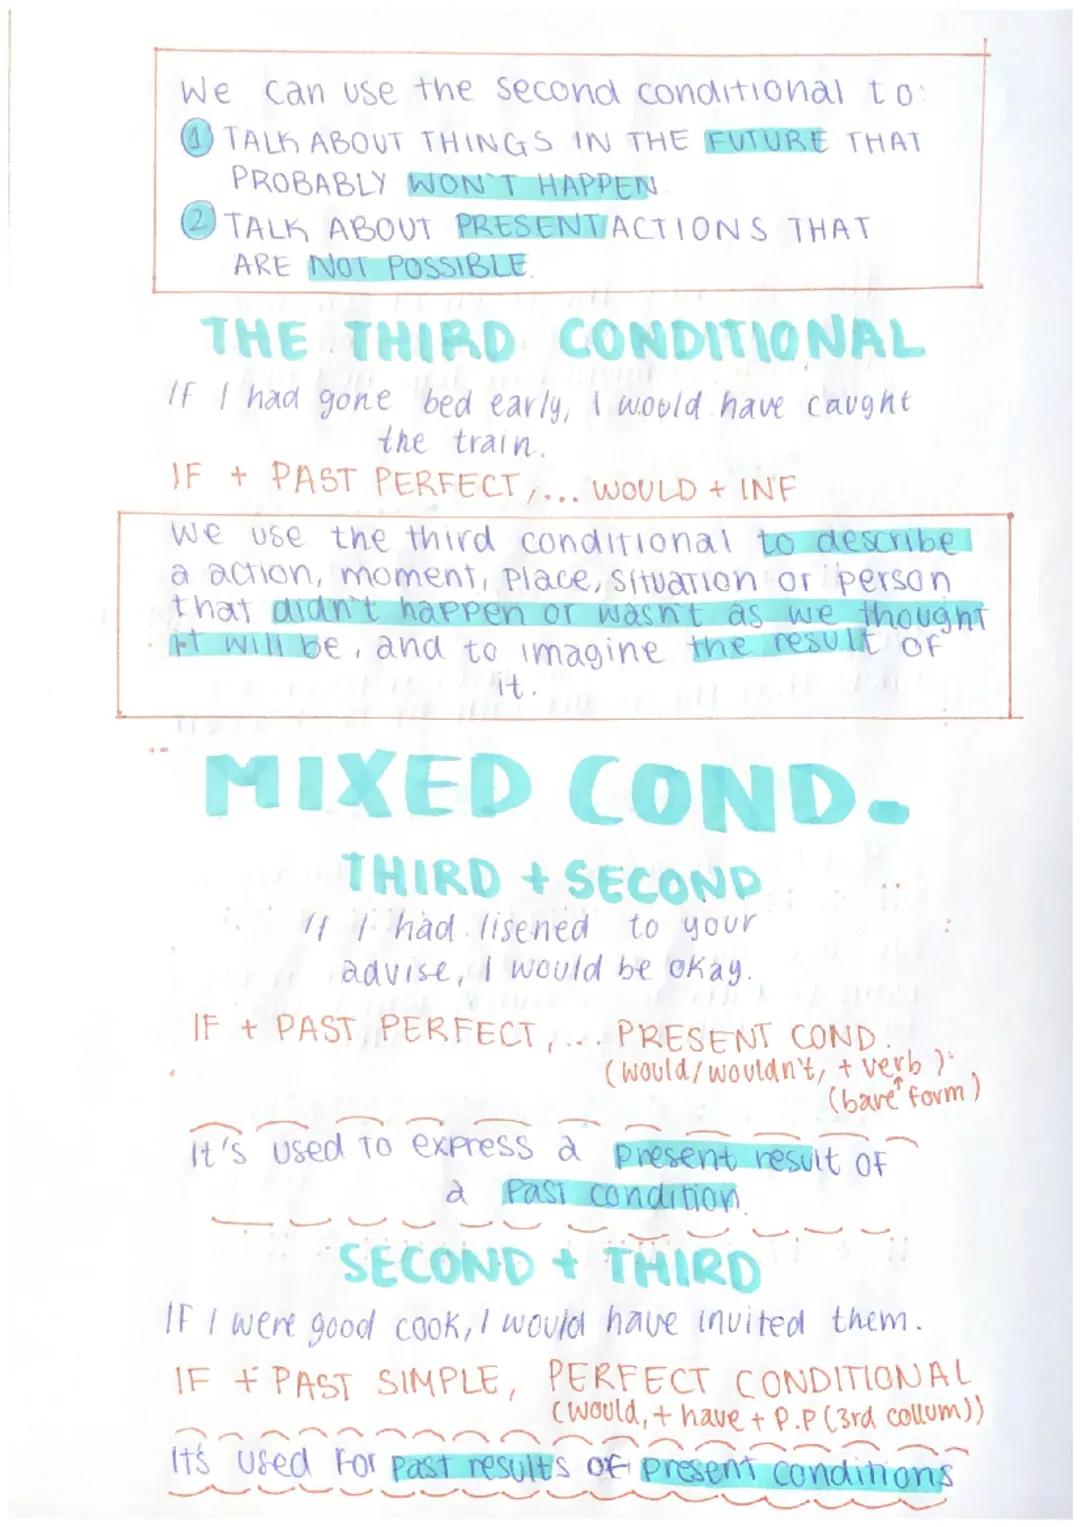 We can use the second conditional to:
1 TALK ABOUT THINGS IN THE FUTURE THAT
PROBABLY WON'T HAPPEN.
2 TALK ABOUT PRESENT ACTIONS THAT
ARE NOT POSSIBLE.
THE THIRD CONDITIONAL
IF I had gone bed early, I would have caught
the train.
IF + PAST PERFECT,... WOULD + INF
We use the third conditional to describe
a action, moment, place, situation or person
that didn't happen or wasn't as we thought
it will be, and to imagine the result of
it.
MIXED COND.
THIRD + SECOND
If I had lisened to your
advise, I would be okay.
IF + PAST PERFECT,... PRESENT COND.
(would/wouldn't, + verb)
(bare form)
It's used to express a present result of
a past condition.
SECOND + THIRD
IF I were good cook, I would have invited them.
IF + PAST SIMPLE, PERFECT CONDITIONAL
(would, + have + P.P (3rd collum))
It's used for past results of present conditions